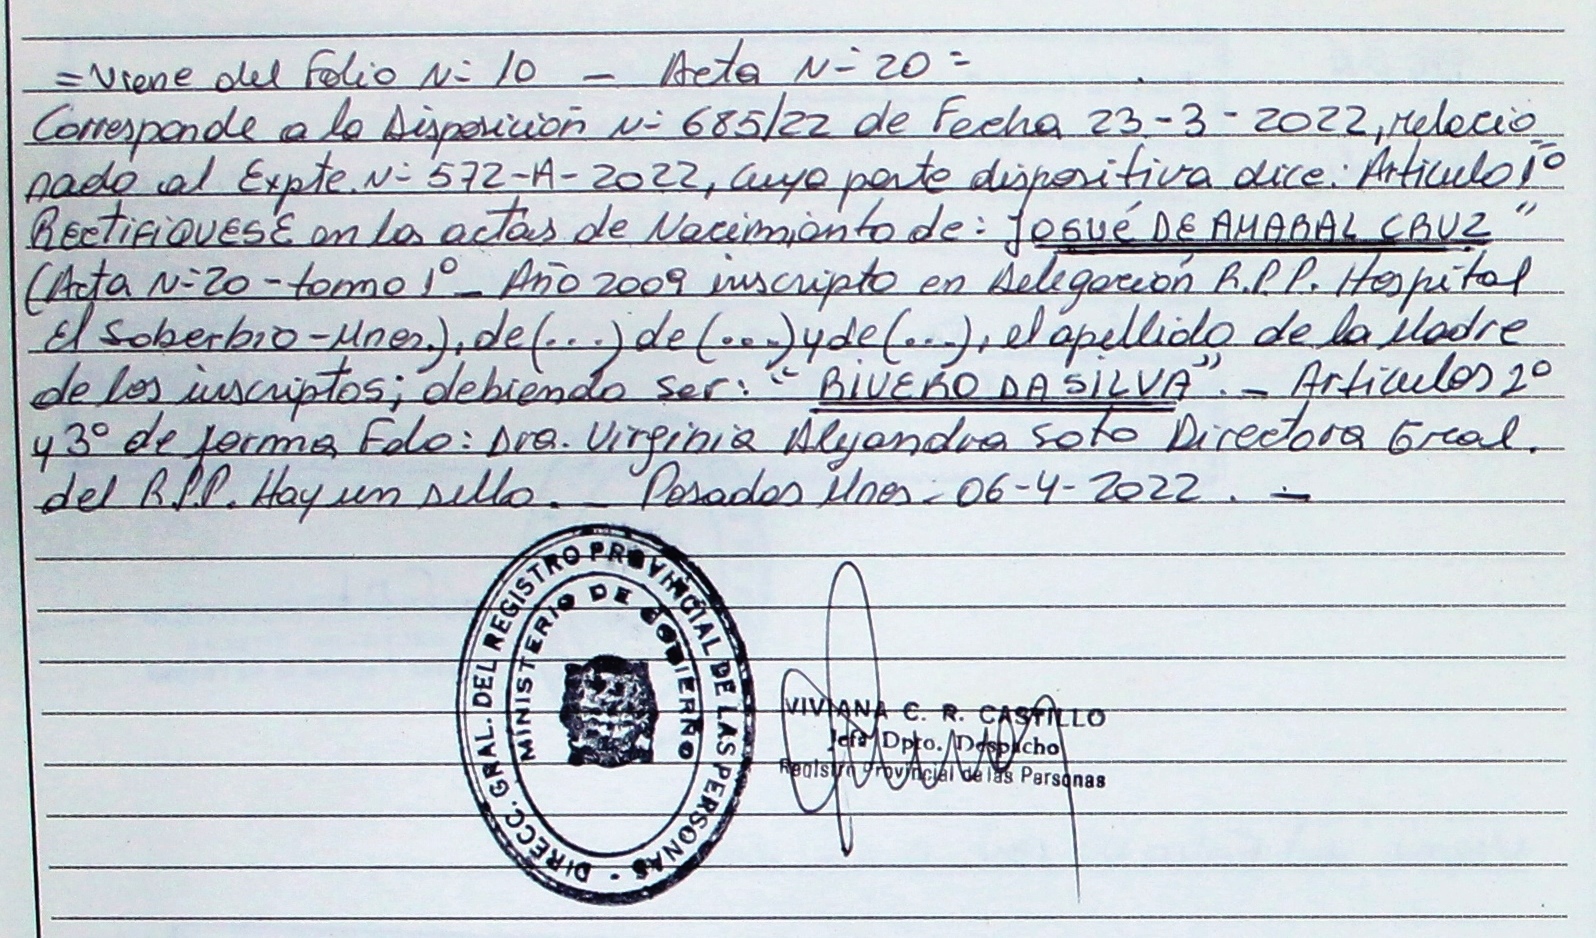 = Viene del Folio N= 10 _ Acta N= 20 =
Corresponde a la Disposición N= 685/22 de Fecha 23-3-2022, relacio
nado al Expte. N= 572-A-2022, cuya parte dispositiva dice: Articulo 1º
RECTIFIQUESE en las actas de Nacimiento de: JOSUÉ DE AMARAL CRUZ"
(Acta N=20 - tomo 1º _ Año 2009 inscripto en Delegación R.P.P. Hospital
El Soberbio - Mnes.), de (...) de (...) y de (...), el apellido de la Madre
de los inscriptos; debiendo ser: "RIVERO DA SILVA". _ Articulos 2º
y 3º de forma Fdo: Dra. Virginia Alejandra Soto Directora Gral.
del R.P.P. Hay un sello. _ Posadas Mnes - 06-4-2022. _
DIRECC. GRAL. DEL REGISTRO PROVINCIAL DE LAS PERSONAS -
MINISTERIO DE GOBIERNO
VIVIANA C. R. CASTILLO
Jefa Dpto. Despacho
Registro Provincial de las Personas